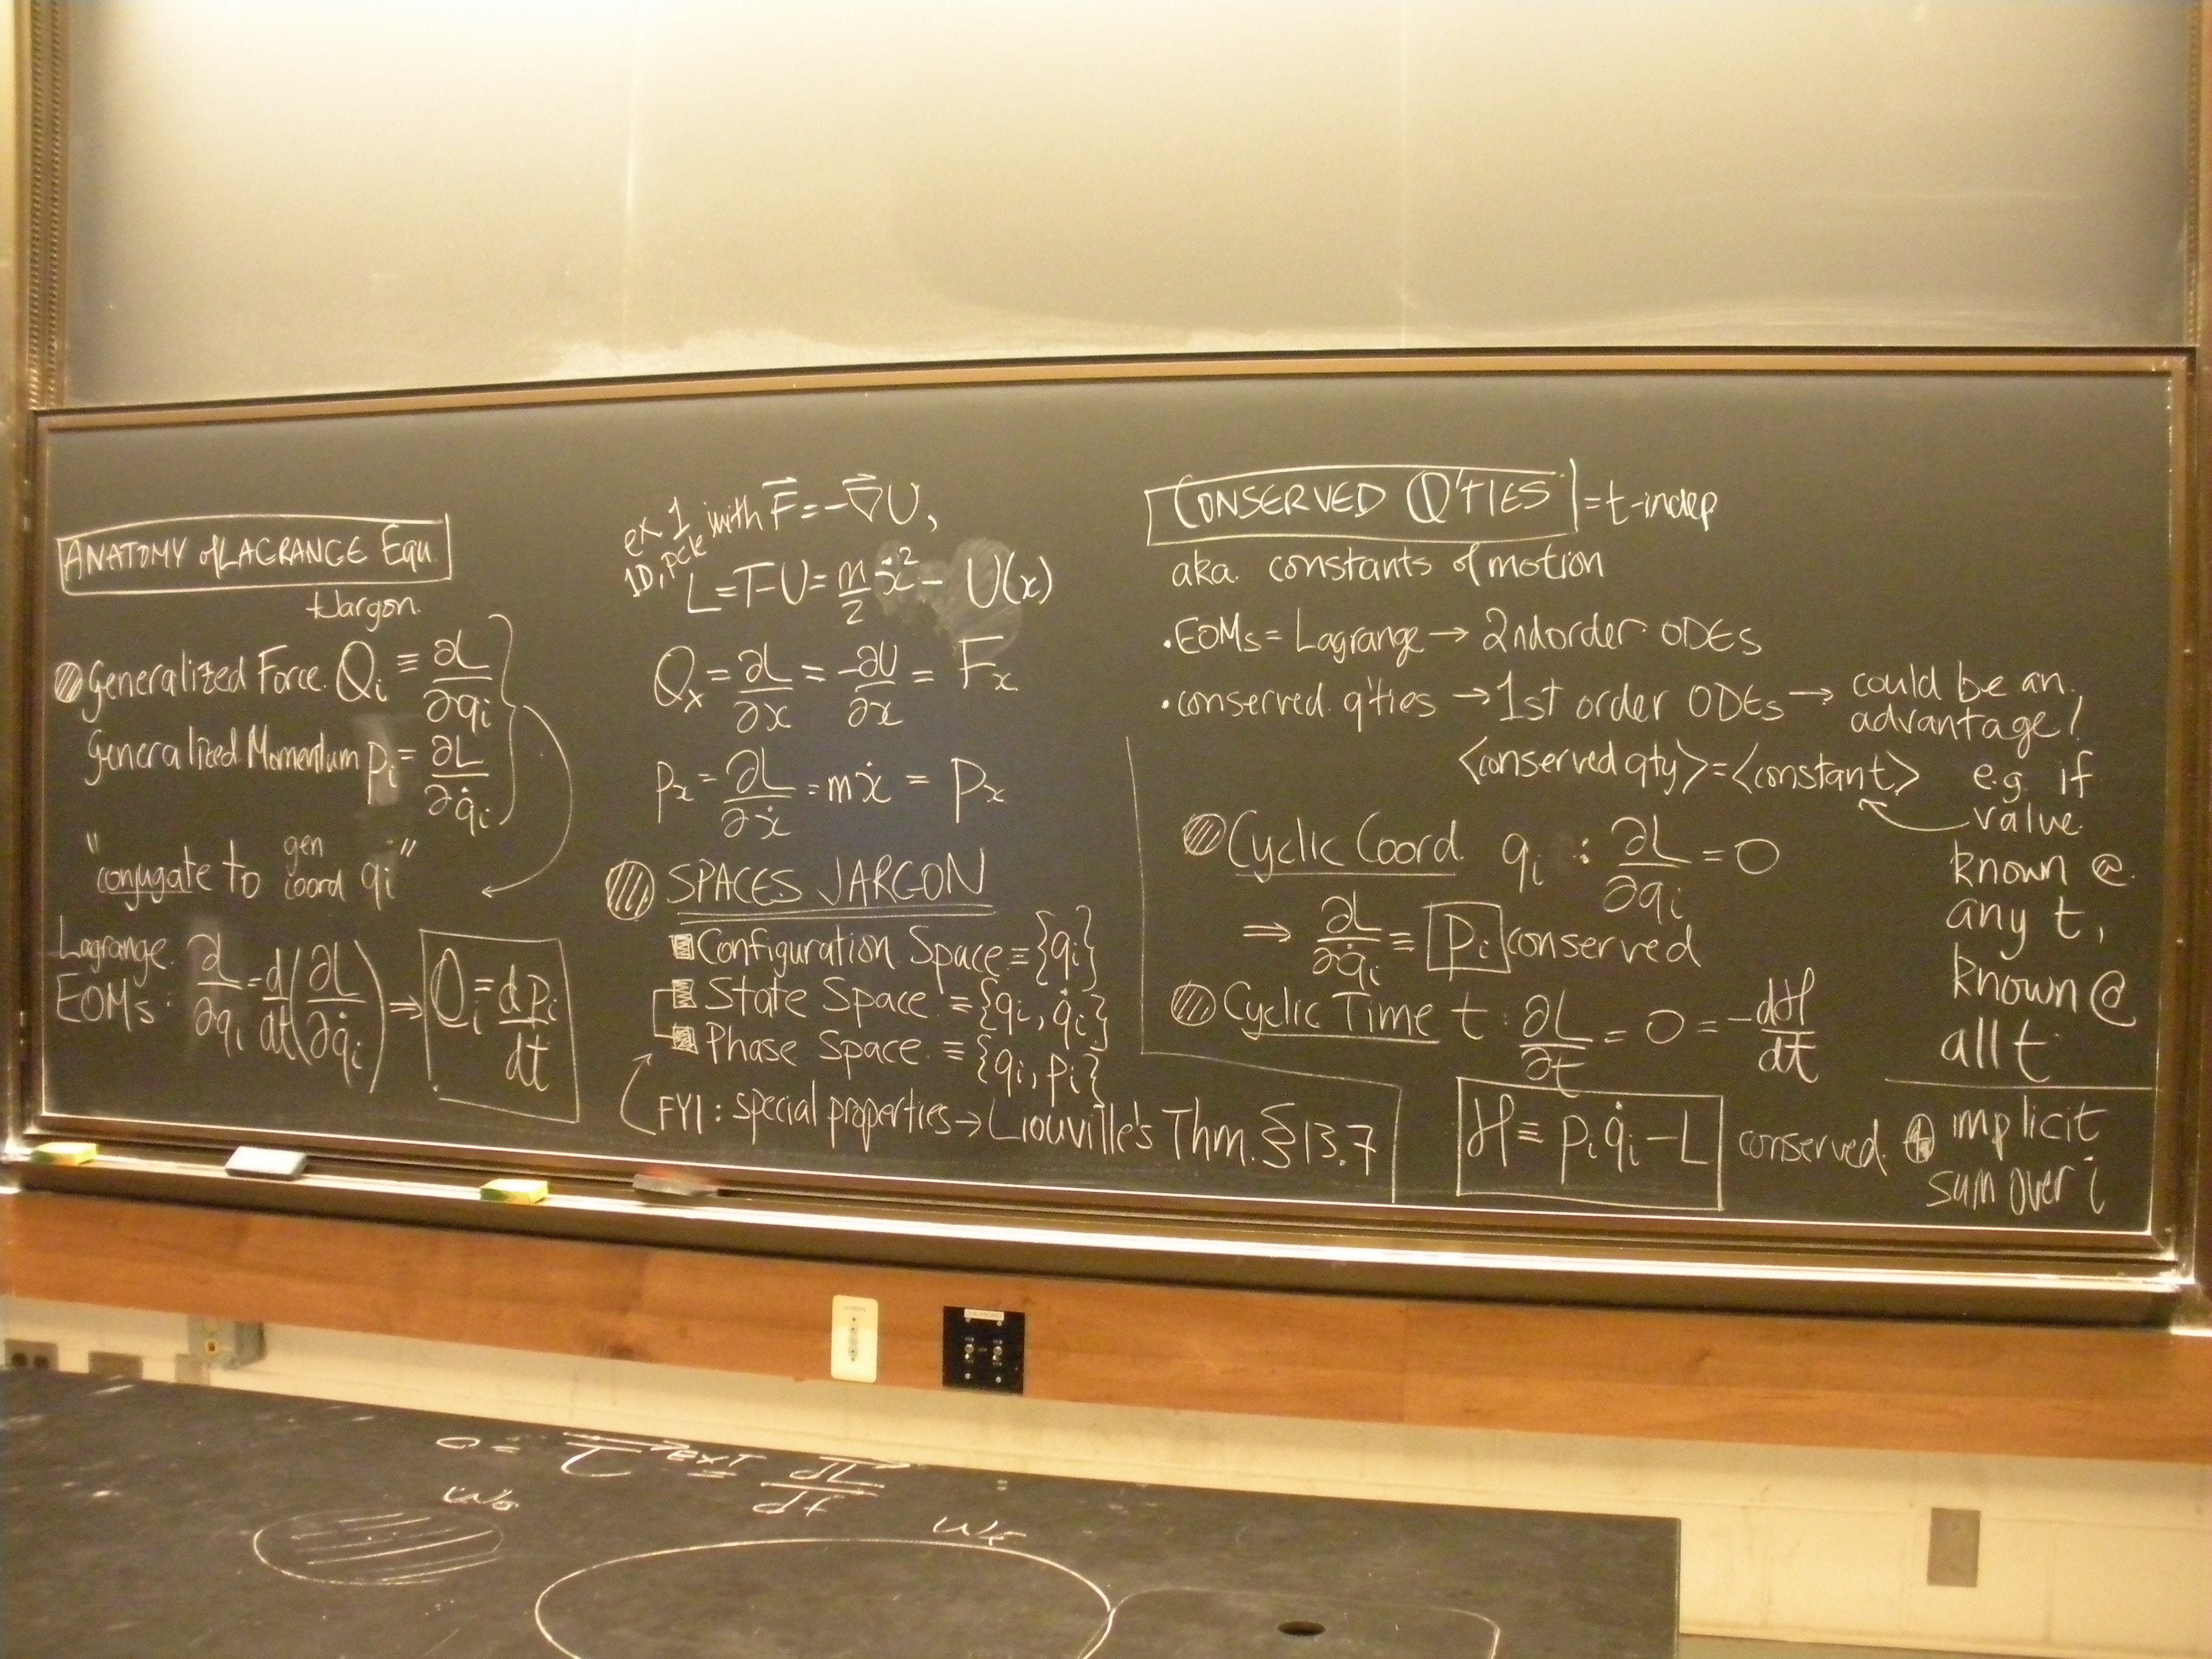 ANATOMY of LAGRANGE Equ.
+Jargon.
Generalized Force. Qᵢ ≡ ∂L/∂qᵢ
Generalized Momentum pᵢ = ∂L/∂q̇ᵢ
"conjugate to gen coord qᵢ"
Lagrange EOMs: ∂L/∂qᵢ = d/dt(∂L/∂q̇ᵢ) ⇒ Qᵢ = dpᵢ/dt
ex 1 with F⃗ = -∇⃗U,
1D, pcle
L = T-U = m/2 ẋ² - U(x)
Qₓ = ∂L/∂x = -∂U/∂x = Fₓ
pₓ = ∂L/∂ẋ = mẋ = pₓ
SPACES JARGON
Configuration Space = {qᵢ}
State Space = {qᵢ, q̇ᵢ}
Phase Space ≡ {qᵢ, pᵢ}
FYI: special properties → Liouville's Thm. §13.7
CONSERVED Q'TIES = t-indep
aka. constants of motion
• EOMs = Lagrange → 2nd order ODEs
• conserved q'ties → 1st order ODEs → could be an advantage!
<conserved qty> = <constant>
e.g. if
value
known @
any t,
known @
all t
Cyclic Coord. qᵢ : ∂L/∂qᵢ = 0
⇒ ∂L/∂q̇ᵢ ≡ pᵢ conserved
Cyclic Time t : ∂L/∂t = 0 = -dH/dt
H ≡ pᵢq̇ᵢ - L conserved
implicit
sum over i
0 = τ⃗ EXT = dL⃗/dt
ω₀
ωf